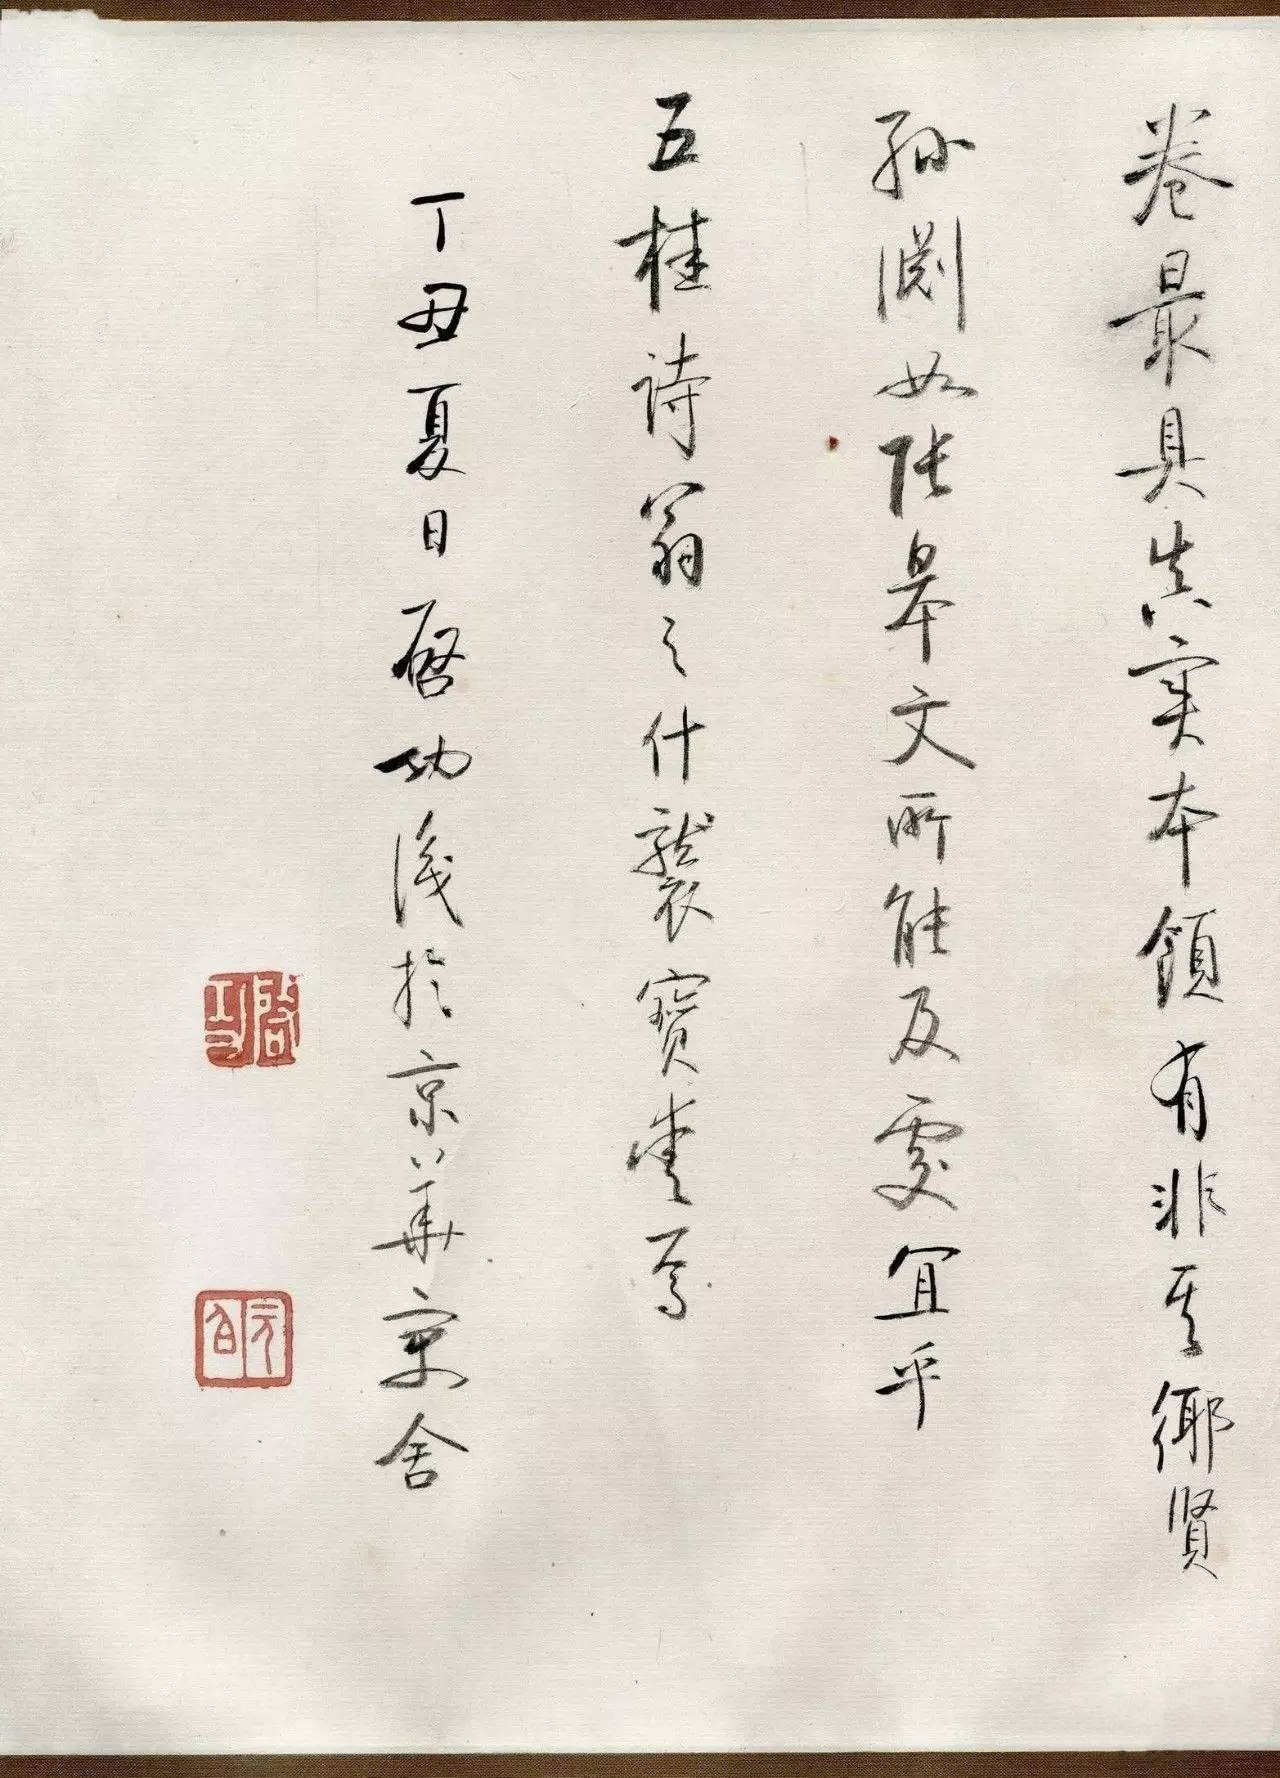 卷最具真實本領有非其鄉賢
孫淵如張皋文所能及處宜乎
五桂詩翁之什襲寶愛焉
丁丑夏日啓功識於京華寓舍
啓功
元白